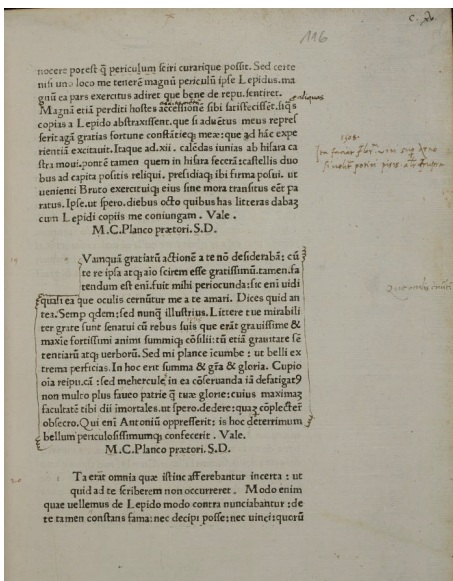 116
nocere potest q̃ periculum sciri curarique possit. Sed certe
nisi uno loco me tenerē magnū periculū ipse Lepidus.ma
gnū ea pars exercitus adiret que bene de repu.sentiret.
Magnā etiā perditi hostes accessionē sibi satisfecissēt.siq̃s
aliquas
copias a Lepido abstraxissent.que si aduētus meus repres
serit agā gratias fortune constātieq; meæ:que ad hāc expe
rientiā excitauit.Itaque ad.xii. calēdas iunias ab hisara ca
stra moui.pontē tamen quem in hisara fecerā:castellis duo
bus ad capita positis reliqui. presidiaq; ibi firma posui. ut
uenienti Bruto exercituiq; eius sine mora transitus eēt pa
ratus. Ipse.ut spero.diebus octo quibus has litteras dabaʒ
cum Lepidi copiis me coniungam . Vale .
M.C.Planco prætori.S.D.
Vamquā gratiarū actionē a te nō desiderabā: cū
te re ipsa atq; aio scirem esse gratissimū.tamen.fa
tendum est eni.fuit mihi periocunda:sic eni uidi
quasi ea que oculis cernūtur me a te amari. Dices quid an
tea.Semp qdem:sed nunq̃ illustrius. Littere tue mirabili
ter grate sunt senatui cū rebus suis que erāt grauissime &
maxie fortissimi animi summiq; cōsilii:tū etiā grauitate sē
tentiarū atq; uerborū. Sed mi plance īcumbe : ut belli ex
trema perficias. In hoc erit summa & gr̄a & gloria. Cupio
oia reipu.cā :sed mehercule in ea cōseruanda iā defatigat9
non multo plus faueo patrie q̃ tuæ glorie:cuius maximaʒ
facultatē tibi dii imortales.ut spero.dedere:quaʒ cōplectēr
obsecro. Qui eni Antoniū oppresserit: is hoc deterrimum
bellum periculosissimumq; confecerit . Vale.
M.C.Planco prætori.S.D.
Ta erāt omnia quæ istinc afferebantur incerta : ut
quid ad te scriberem non occurreret . Modo enim
quae uellemus de Lepido modo contra nunciabantur :de
te tamen constans fama:nec decipi posse:nec uinci:quorū